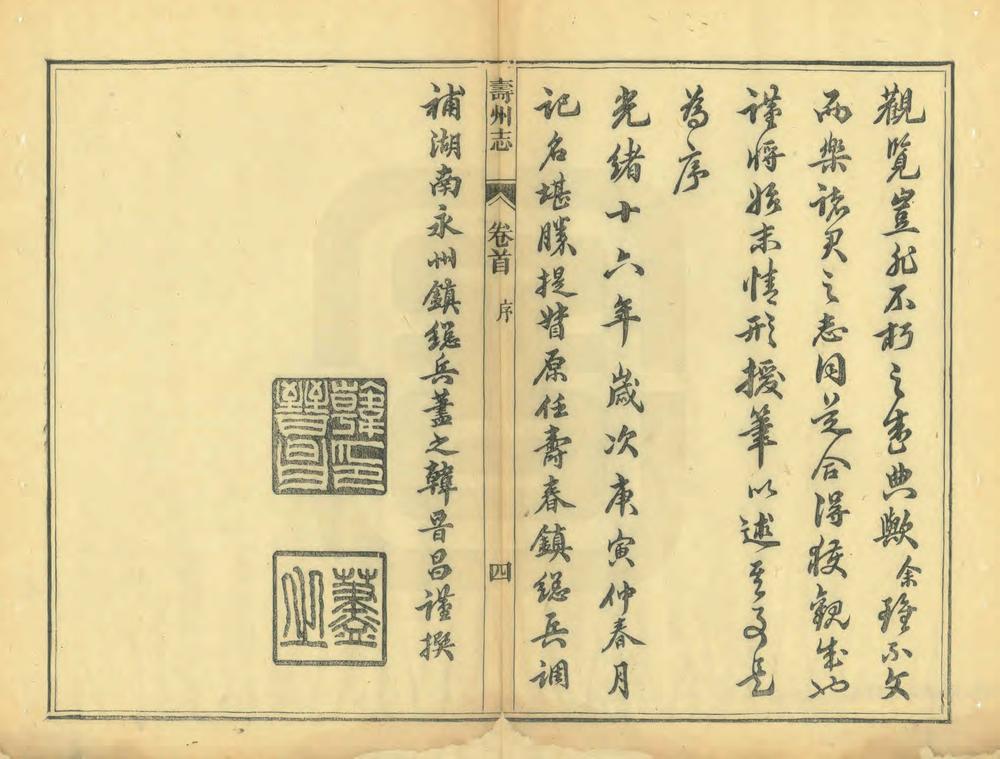 觀覽豈非不朽之盛典歟余雖不文
而樂諸君之志同道合得獲觀成也
謹將始末情形援筆以述其事是
為序
光緒十六年歲次庚寅仲春月
記名堪勝提督原任壽春鎮總兵調
壽州志
卷首
序
四
補湖南永州鎮總兵藎之韓晉昌謹撰
韓印晉昌
藎之